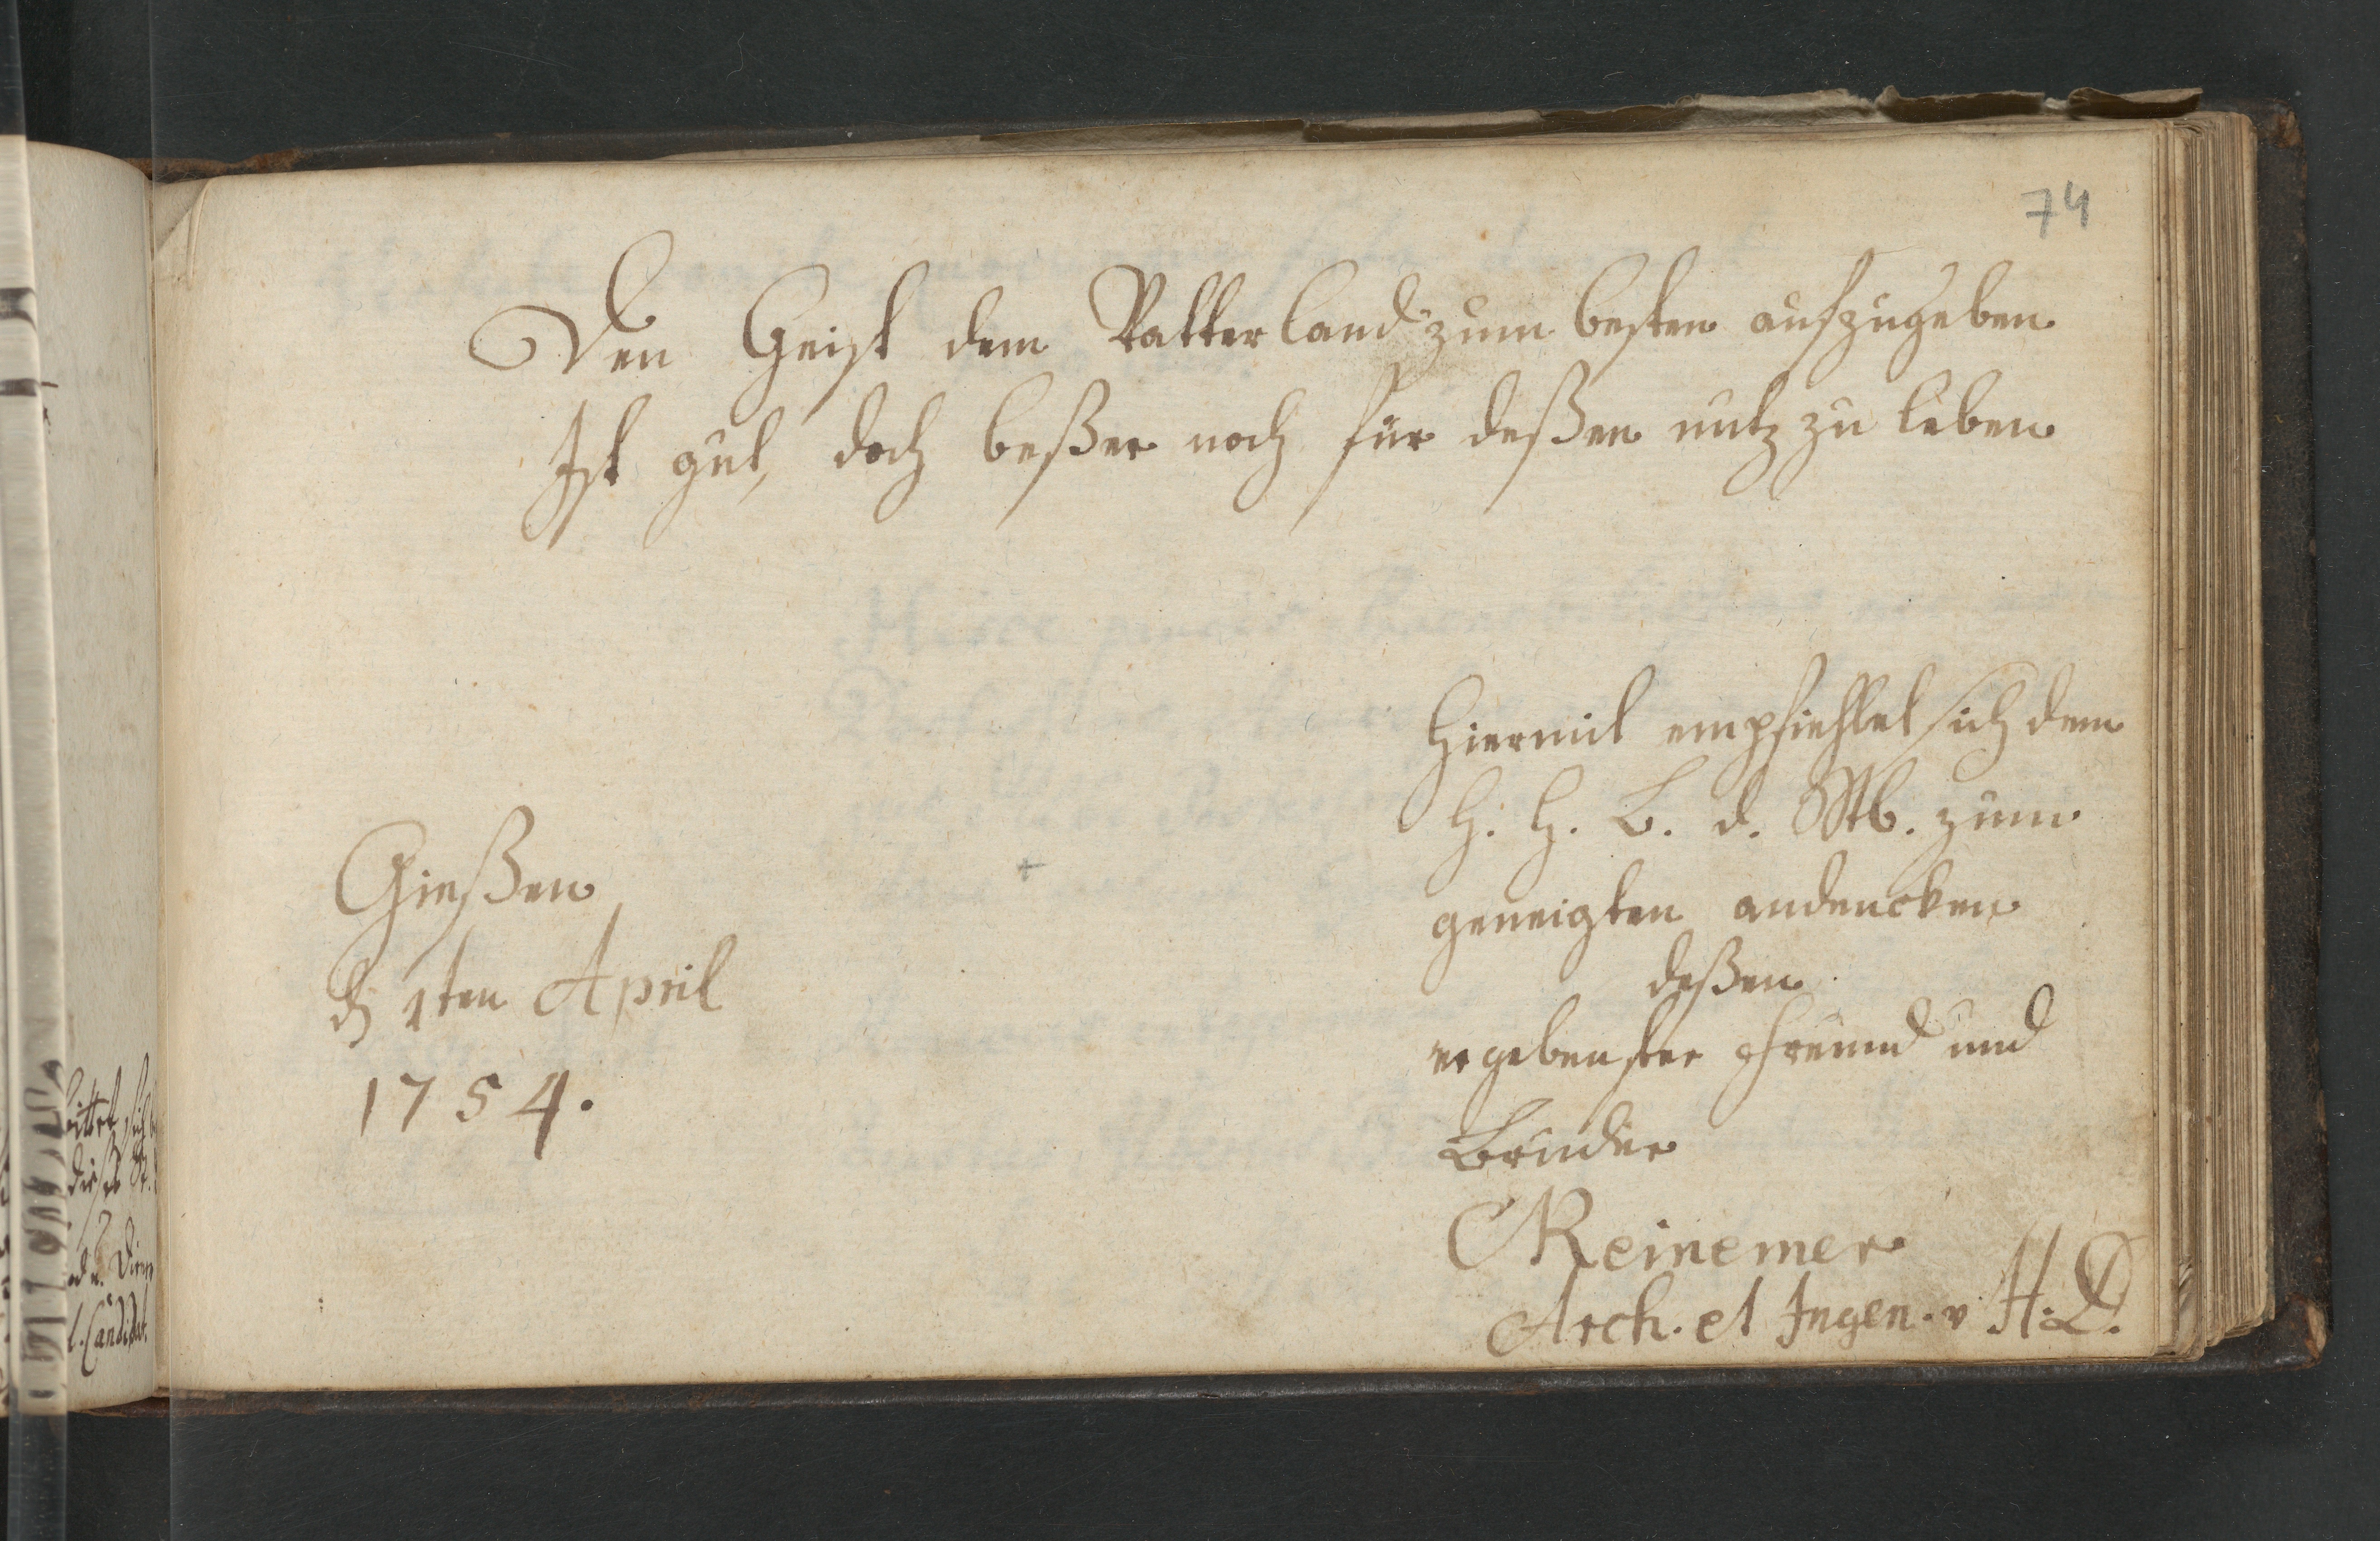 74
Den Geist dem Vatterland zum besten aufzugeben
Ist gut, doch beßer noch für deßen nutz zu leben
Gießen
d 1ten April
1754.
Hiermit empfiehlet sich dem
H. H. B. d. Stb. zum
geneigten andencken
deßen
ergebenster Freund und
Bruder
Reinemer
Arch. et Ingen. v. H. D.